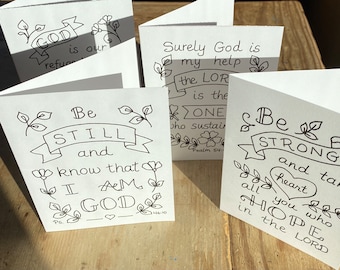 GOD
is our
refuge
Surely God is
my help
the LORD
is the
ONE
who sustains
Psalm
Be
STILL
and
know that
I AM
GOD
Ps.
Be
STRONG
and take
heart
all you who
HOPE
in the LORD